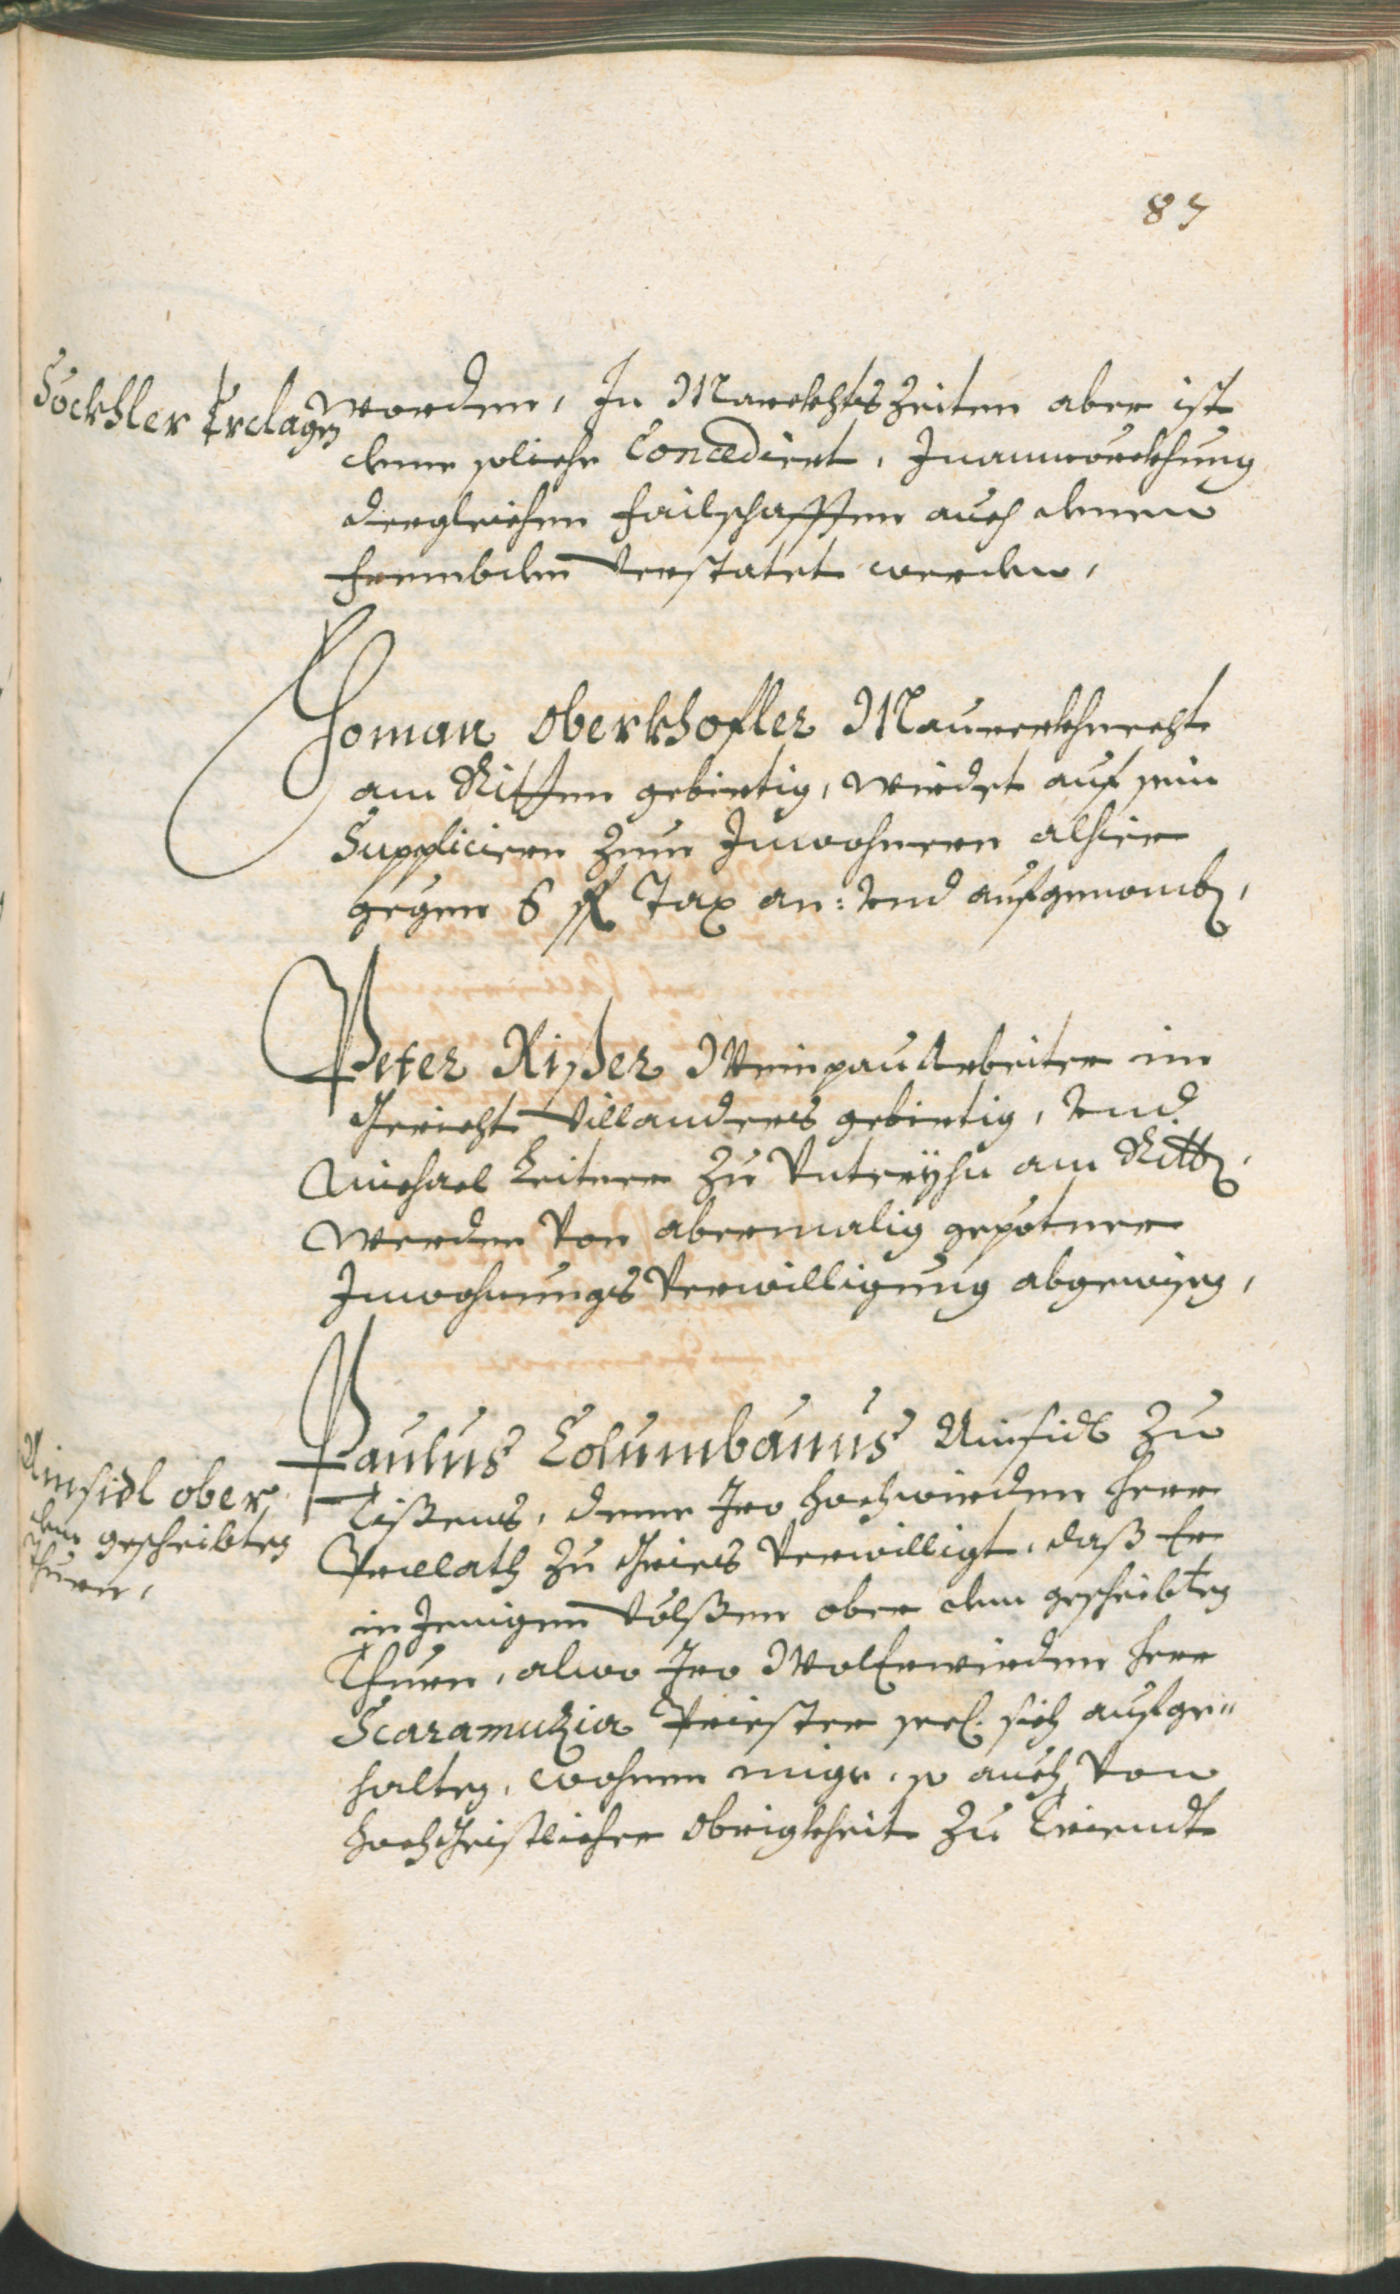 87
Söckhler Erclagen
worden, In Marckhts Zeiten aber ist
deme soliche Concediert,
dergleichen failschafften auch denen
frembden verstatet werden,
Thoman Oberkhofler Maurerkhnecht
am Ritten gebirtig, wirdet auf sein
Suppliciern zum Inwohnern alhier
gegen 6 fl Tax an: vnd aufgenomben,
Peter Rißer Weinpau Arbeiter im
Gericht Villanders gebirtig, vnd
Michael Leitner zu am Ritten
werden von abermalig gepotner
Inwohnungs Verwilligung abgewisen,
Ainsidl ober
dem gescheibten
Thurn,
Paulus Columbanus Ainsidl zu
Tißens, deme Iro Hochwirden Herr
Prelath zu Gries verwilligt, daß Er
in Jenigen ober dem gescheibten
Thurn, alwo Iro WolErwirden Herr
Scaramuzia Priester seel. sich aufge-
halten, wohnen mige, so auch von
hochGeistlicher Obrigkheit zu Triendt